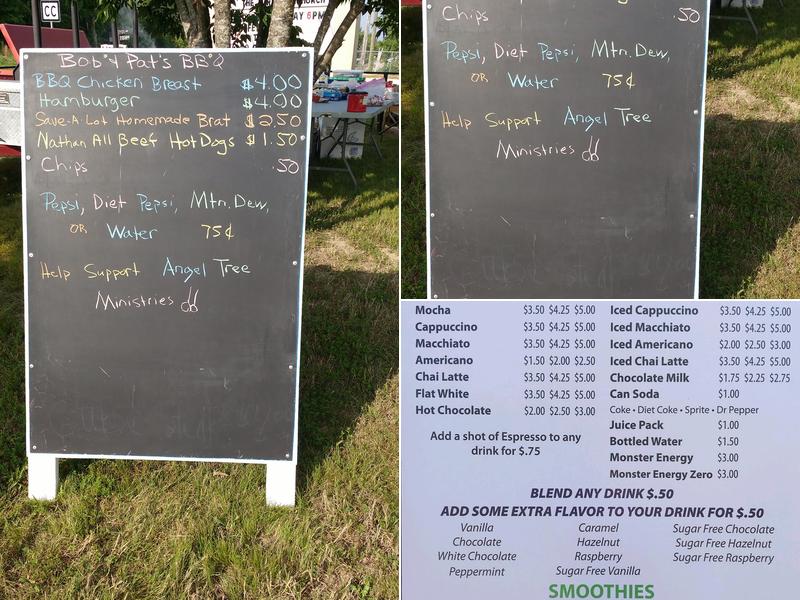 CC
CHURCH
AY 6PM
Bob 'Y Pat's BB'Q
BBQ Chicken Breast $4.00
Hamburger $4.00
Save-A-Lot Homemade Brat $2.50
Nathan All Beef Hot Dogs $1.50
Chips .50
Pepsi, Diet Pepsi, Mtn. Dew,
OR Water 75¢
Help Support Angel Tree
Ministries
Chips .50
Pepsi, Diet Pepsi, Mtn. Dew,
OR Water 75¢
Help Support Angel Tree
Ministries
Mocha $3.50 $4.25 $5.00
Cappuccino $3.50 $4.25 $5.00
Macchiato $3.50 $4.25 $5.00
Americano $1.50 $2.00 $2.50
Chai Latte $3.50 $4.25 $5.00
Flat White $3.50 $4.25 $5.00
Hot Chocolate $2.00 $2.50 $3.00
Add a shot of Espresso to any
drink for $.75
Iced Cappuccino $3.50 $4.25 $5.00
Iced Macchiato $3.50 $4.25 $5.00
Iced Americano $2.00 $2.50 $3.00
Iced Chai Latte $3.50 $4.25 $5.00
Chocolate Milk $1.75 $2.25 $2.75
Can Soda $1.00
Coke • Diet Coke • Sprite • Dr Pepper
Juice Pack $1.00
Bottled Water $1.50
Monster Energy $3.00
Monster Energy Zero $3.00
BLEND ANY DRINK $.50
ADD SOME EXTRA FLAVOR TO YOUR DRINK FOR $.50
Vanilla Caramel Sugar Free Chocolate
Chocolate Hazelnut Sugar Free Hazelnut
White Chocolate Raspberry Sugar Free Raspberry
Peppermint Sugar Free Vanilla
SMOOTHIES